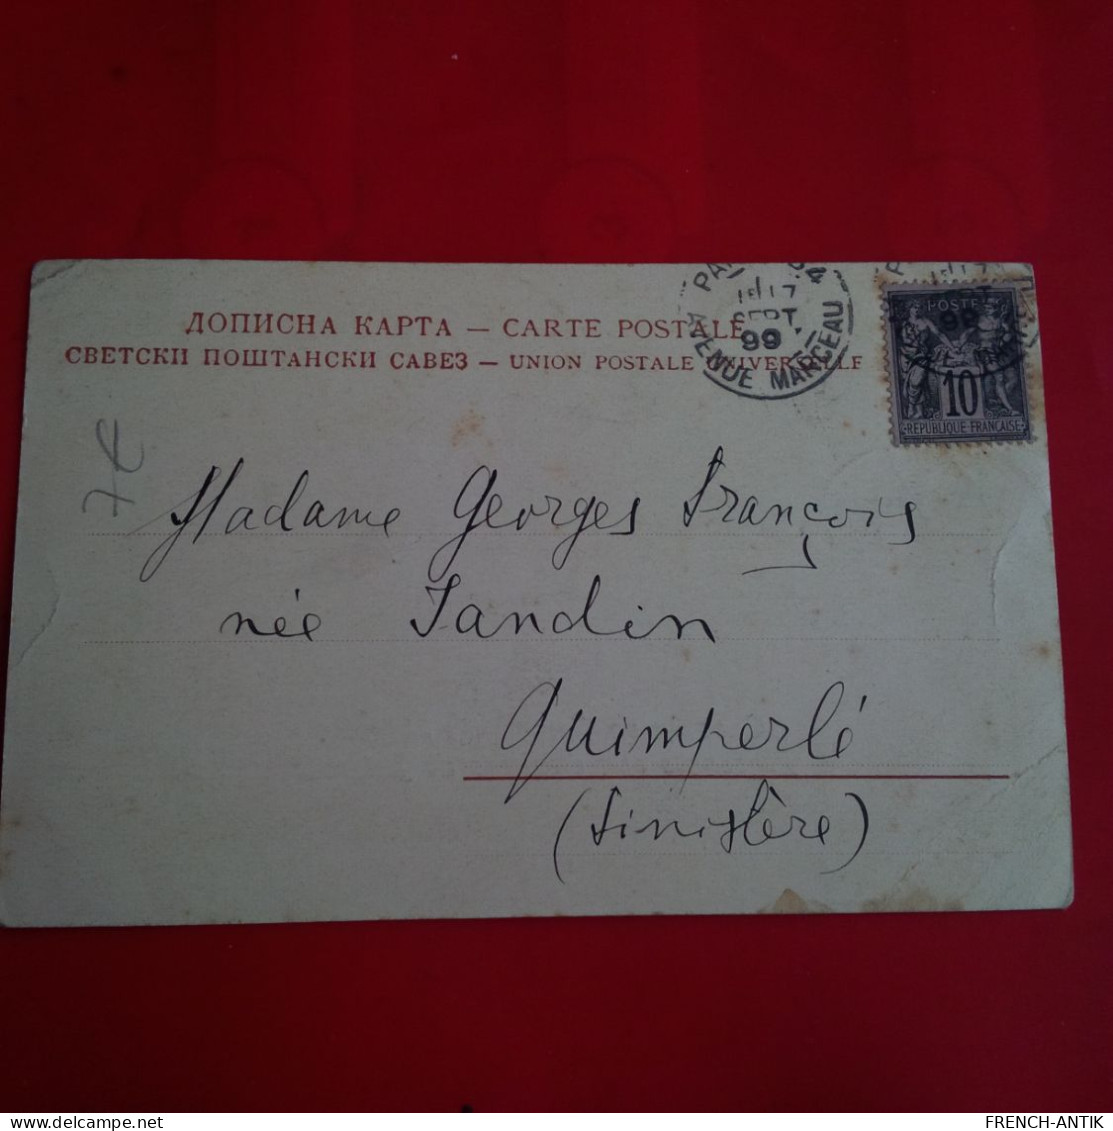 ДОПИСНА КАРТА — CARTE POSTALE
СВЕТСКИ ПОШТАНСКИ САВЕЗ — UNION POSTALE UNIVERSELLE
SEPT.
99
AVENUE MARCEAU
POSTE
99
10
REPUBLIQUE FRANÇAISE
Madame Georges François
née Jandin
Quimperlé
(Finistère)
FRENCH-ANTIK